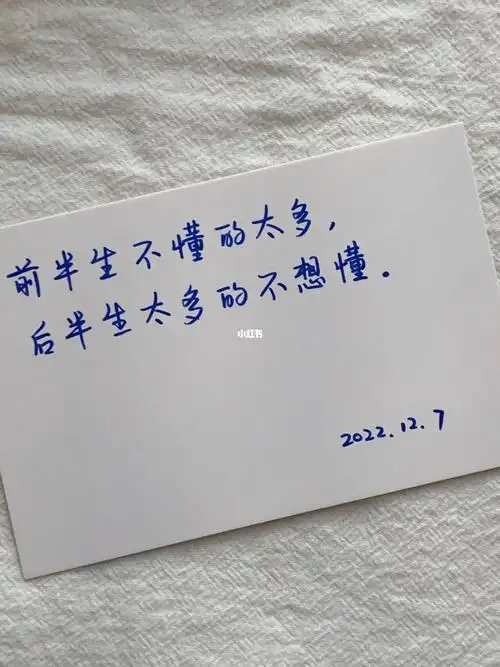 前半生不懂的太多，
后半生太多的不想懂。
小红书
2022.12.7